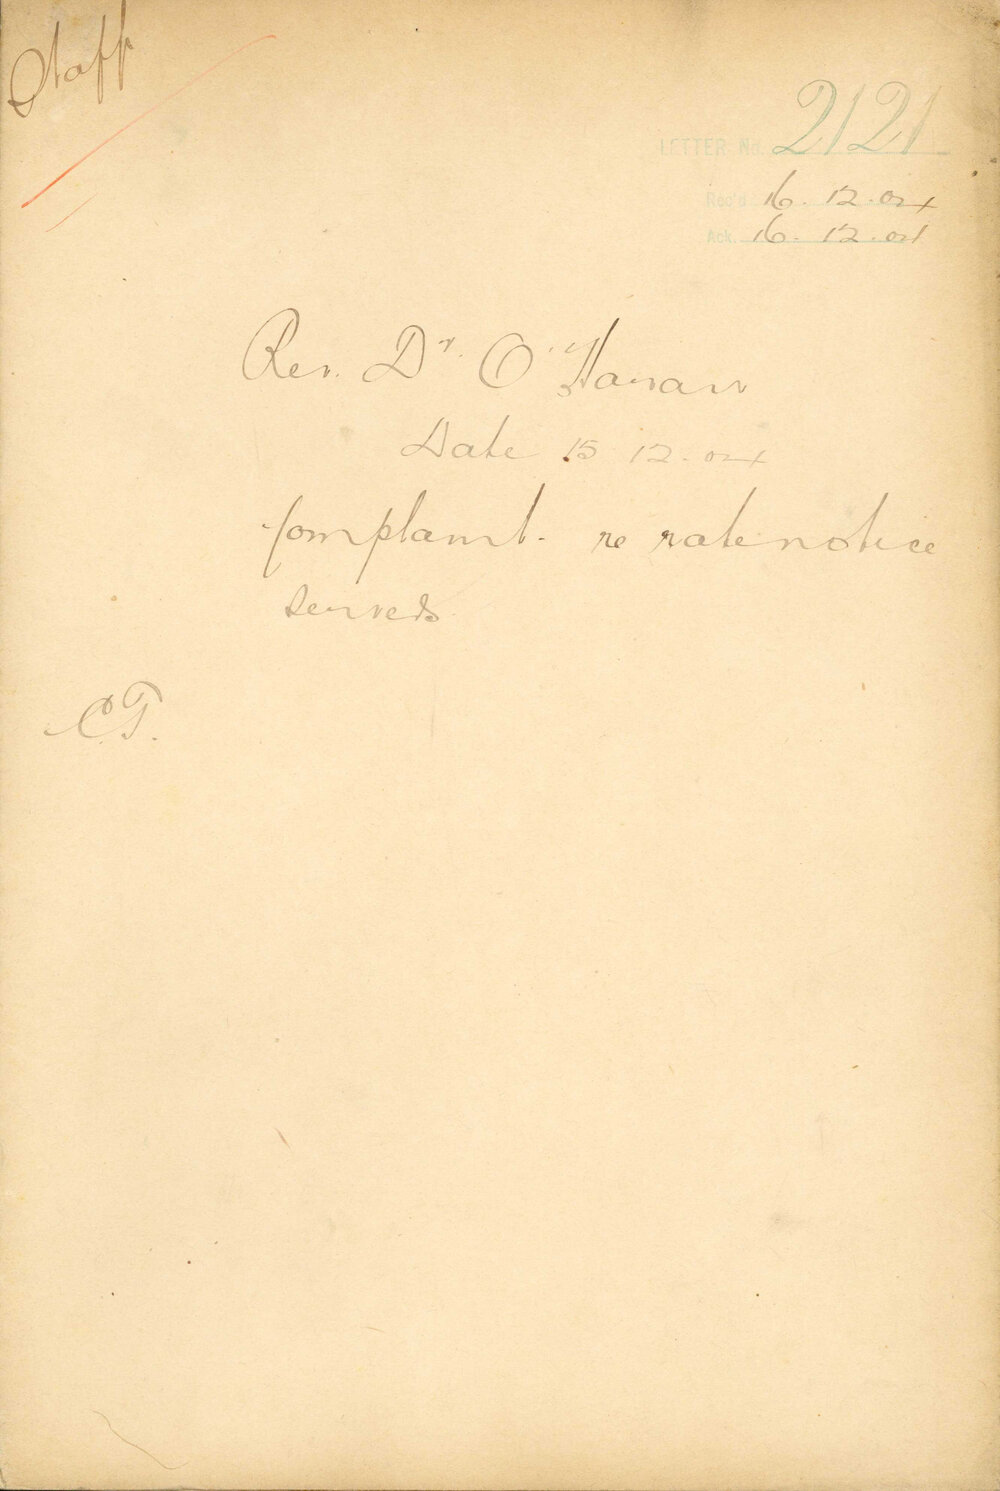 Staff
LETTER No. 2121
Rec'd 16.12.04
Ack. 16.12.04
Rev. Dr. O'Haran
Date 15 12.04
Complaint. re rate notice
served
C.T.